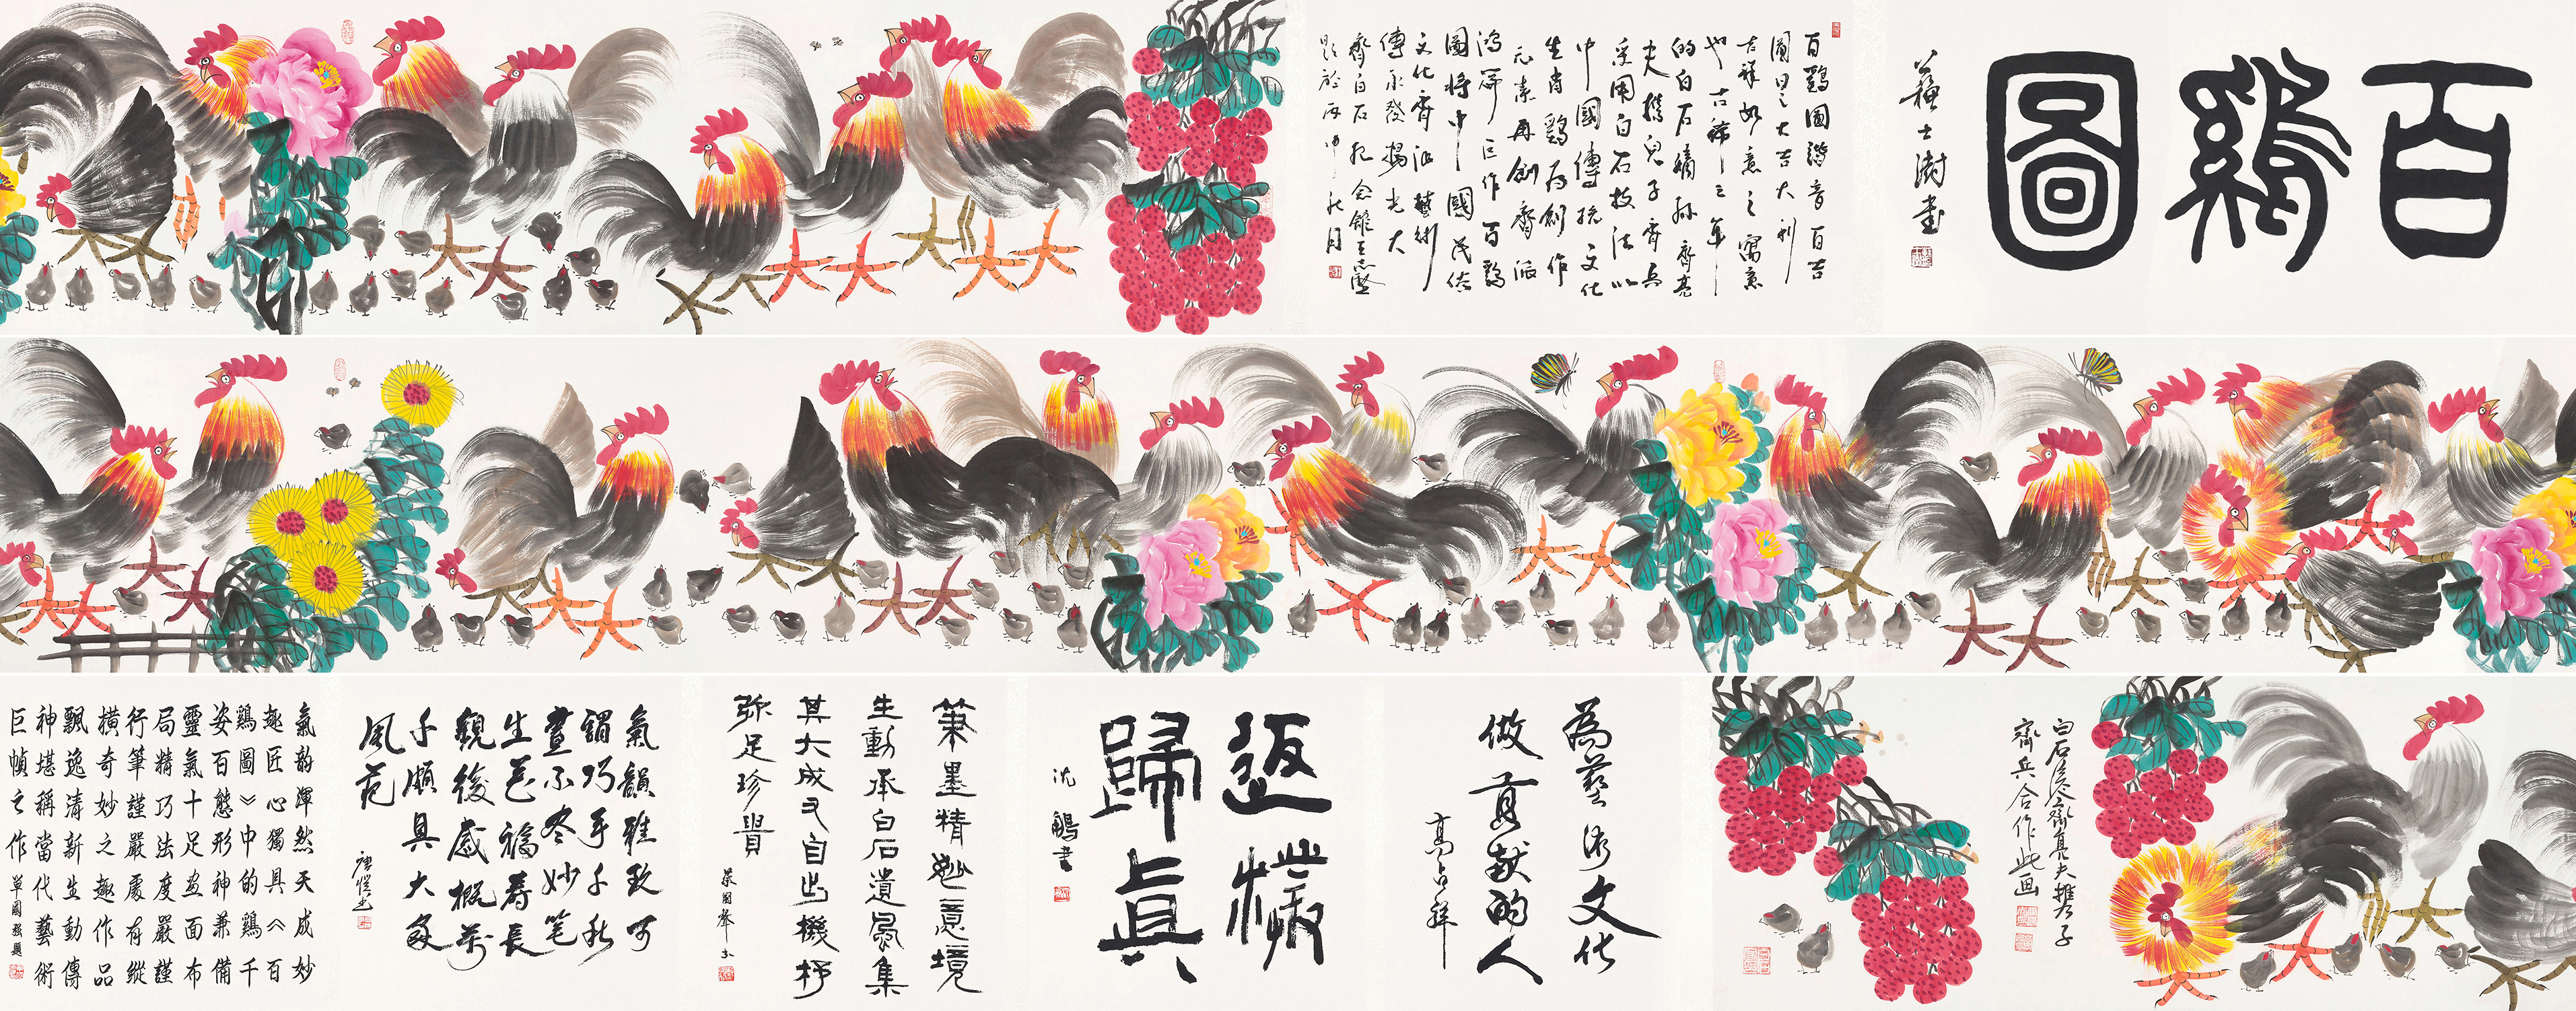 百鷄圖
蘇士澍書
百鷄圖諧音百吉
圖曰之大吉大利
吉祥如意之寓意
也古稀之年
的白石嫡孫齊亮
夫攜兒子齊兵
采用白石技法以
中國傳統文化
生肖鷄爲創作
元素再創齊派
鴻篇巨作百鷄
圖將中國民俗
文化齊派藝術
傳承發揚光大
齊白石紀念館王志堅
題於丙申秋月
白石後人齊亮夫攜子
齊兵合作此画
為藝術文化
做貢獻的人
高占祥
返樸
歸真
沈鵬書
筆墨精妙意境
生動承白石遺風集
其大成又自出機杼
弥足珍貴
氣韻雅致可
謂巧手千秋
畫不盡妙笔
生花福壽長
觀後感概萬
千頗具大家
風范
唐愷書
氣韵渾然天成妙
趣匠心獨具《百
鷄圖》中的鷄千
姿百態形神兼備
靈氣十足画面布
局精巧法度嚴謹
行筆謹嚴處有縱
橫奇妙之趣作品
飄逸清新生動傳
神堪稱當代藝術
巨幀之作
單國強題